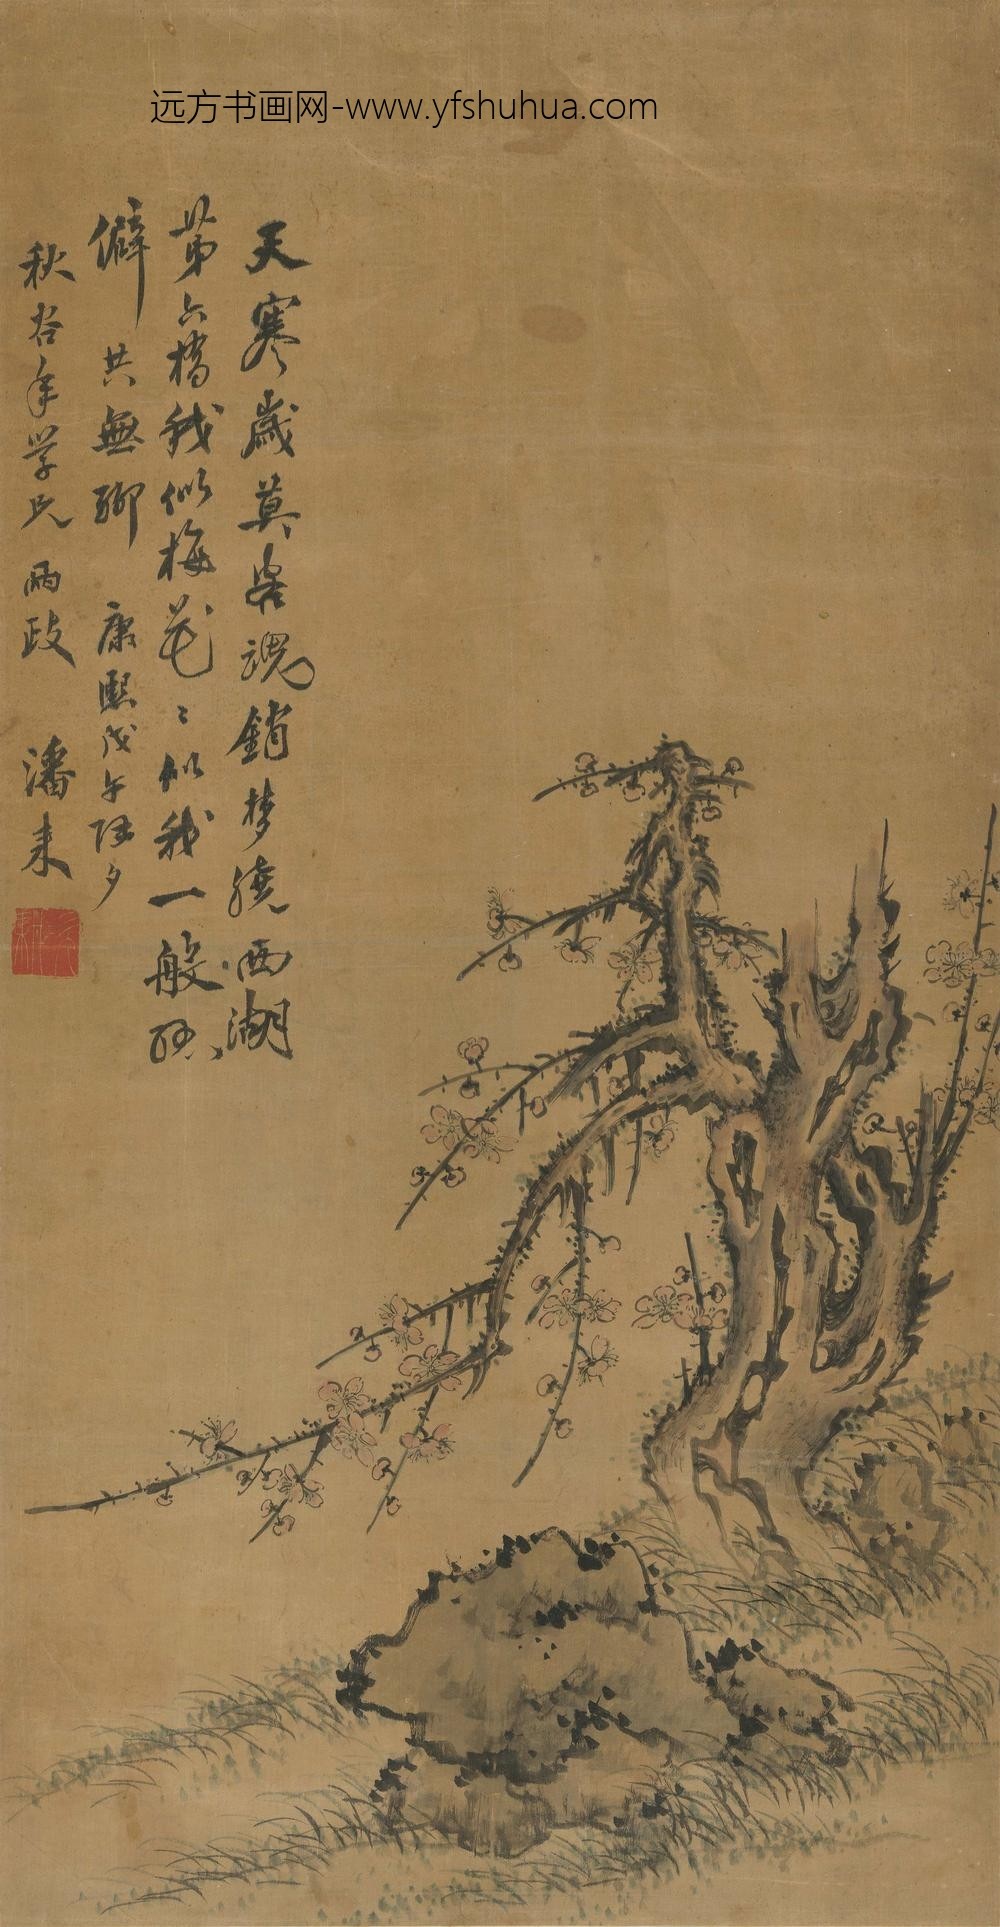 远方书画网-www.yfshuhua.com
天寒歲莫客魂銷梦繞西湖
苐六橋我似梅花〻似我一般孤
僻共無聊 康熙戊午除夕
秋谷年學兄兩政 潘耒